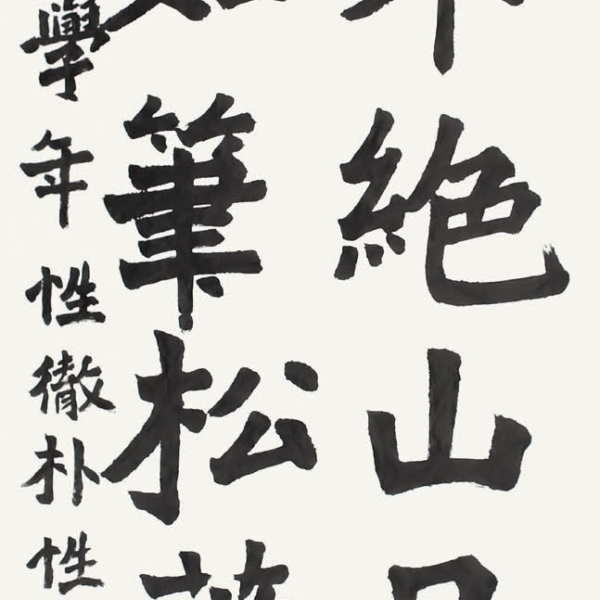 絶山
筆松
學年性徹朴性